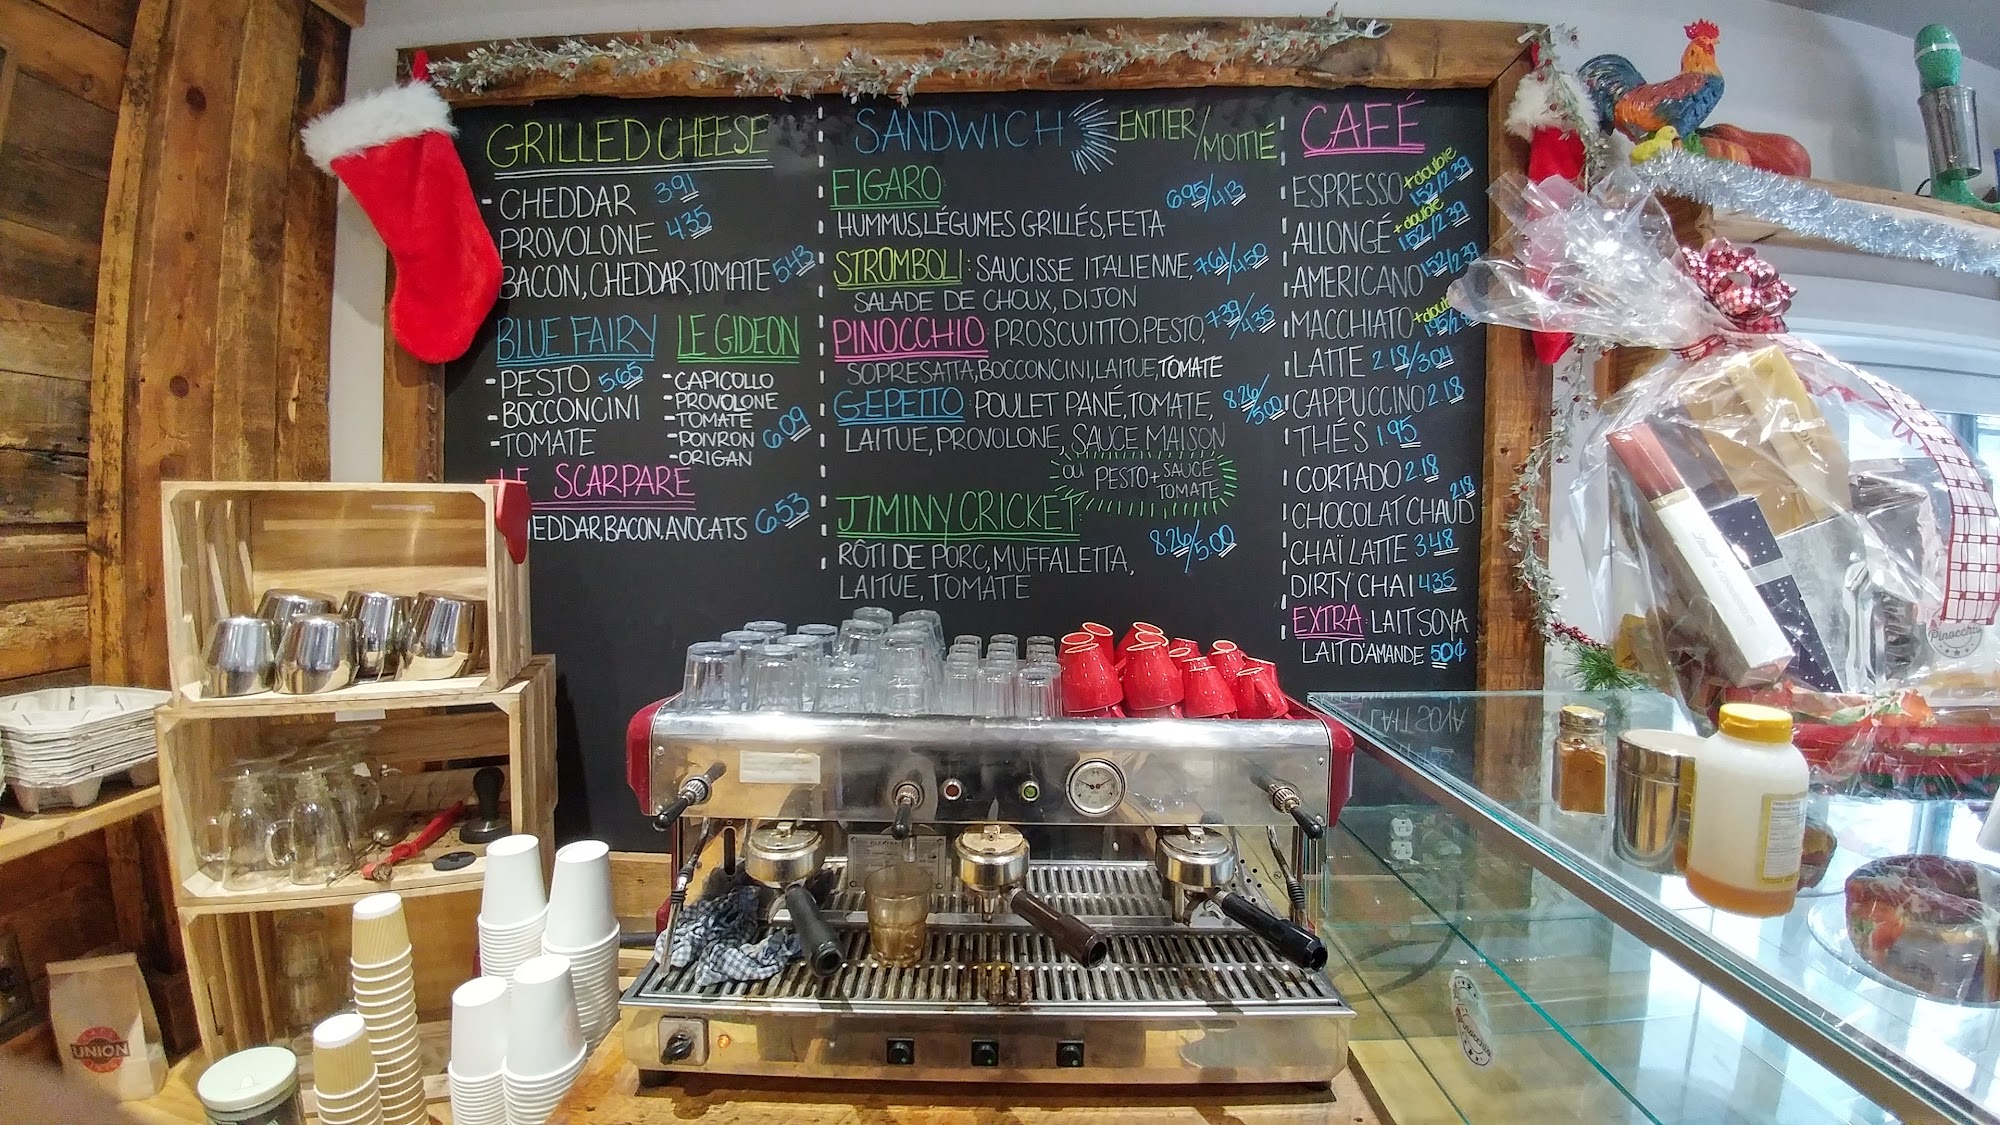 GRILLED CHEESE
- CHEDDAR 3.91
PROVOLONE 4.35
BACON, CHEDDAR, TOMATE 5.43
BLUE FAIRY
- PESTO 5.65
- BOCCONCINI
- TOMATE
LE GIDEON
- CAPICOLLO
- PROVOLONE
- TOMATE
- POIVRON 6.09
- ORIGAN
LE SCARPARE
HEDDAR, BACON, AVOCATS 6.53
SANDWICH ENTIER/MOITIÉ
FIGARO: 6.95/4.13
HUMMUS, LÉGUMES GRILLÉS, FETA
STROMBOLI: SAUCISSE ITALIENNE, 7.61/4.50
SALADE DE CHOUX, DIJON
PINOCCHIO: PROSCUITTO, PESTO, 7.39/4.35
SOPRESATTA, BOCCONCINI, LAITUE, TOMATE
GEPETTO: POULET PANÉ, TOMATE, 8.26/5.00
LAITUE, PROVOLONE, SAUCE MAISON
OU PESTO + SAUCE
TOMATE
JIMINY CRICKET:
RÔTI DE PORC, MUFFALETTA, 8.26/5.00
LAITUE, TOMATE
CAFÉ
ESPRESSO + double 1.52/2.39
ALLONGÉ + double 1.52/2.39
AMERICANO 1.52/2.39
MACCHIATO
LATTE 2.18/3.04
CAPPUCCINO 2.18
THÉS 1.95
CORTADO 2.18
CHOCOLAT CHAUD 2.18
CHAÏ LATTE 3.48
DIRTY CHAI 4.35
EXTRA: LAIT SOYA
LAIT D'AMANDE 50¢
UNION
ELEKTRA
Pinocchio
Pinocchio